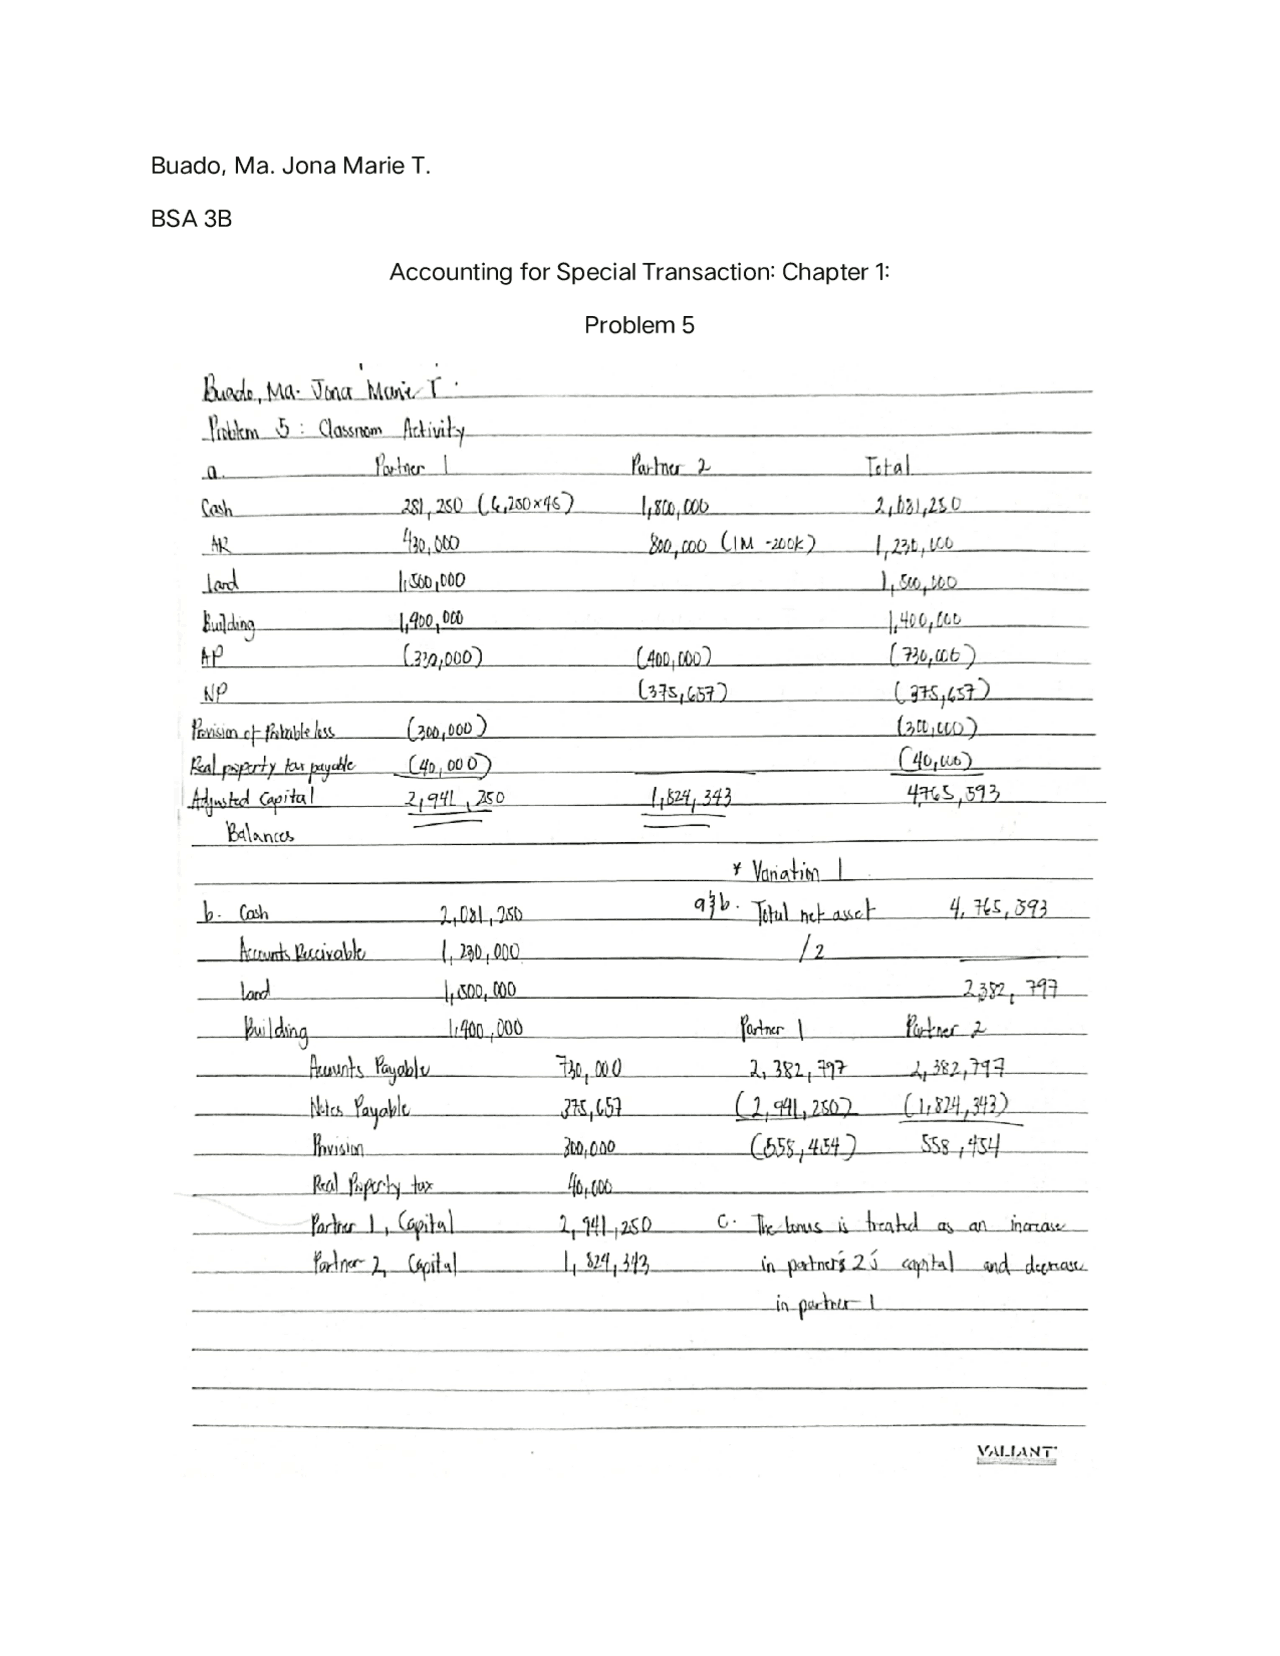 Buado, Ma. Jona Marie T.
BSA 3B
Accounting for Special Transaction: Chapter 1:
Problem 5
Buado, Ma. Jona Marie T.
Problem 5 : Classroom Activity
a. Partner 1 Partner 2 Total
Cash 281,250 (6,250x45) 1,800,000 2,081,250
AR 430,000 800,000 (1M -200k) 1,230,000
land 1,500,000 1,500,000
Building 1,400,000 1,400,000
AP (330,000) (400,000) (730,000)
NP (375,657) (375,657)
Provision of Probable loss (300,000) (300,000)
Real property tax payable (40,000) (40,000)
Adjusted Capital 2,941,250 1,824,343 4765,593
Balances
* Variation 1
b. Cash 2,081,250 a&b. Total net asset 4,765,593
Accounts Receivable 1,230,000 /2
land 1,500,000 2382,797
Building 1,400,000 Partner 1 Partner 2
Accounts Payable 730,000 2,382,797 2,382,797
Notes Payable 375,657 (2,941,250) (1,824,343)
Provision 300,000 (558,454) 558,454
Real Property tax 40,000
Partner 1, Capital 2,941,250 c. The bonus is treated as an increase
Partner 2, Capital 1,824,343 in partner's 2's capital and decrease
in partner 1
VALIANT